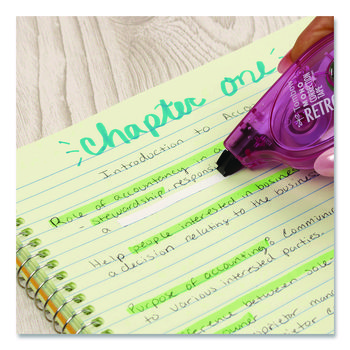 chapter one
Introduction to Acc
Role of accountancy in a
- stewardship respons
a
Help people interested in business
a decision relating to the business
Purpose of accounting? Communi
to various interested parties.
ference between sole
owner
oprietor man
MONO
RETR